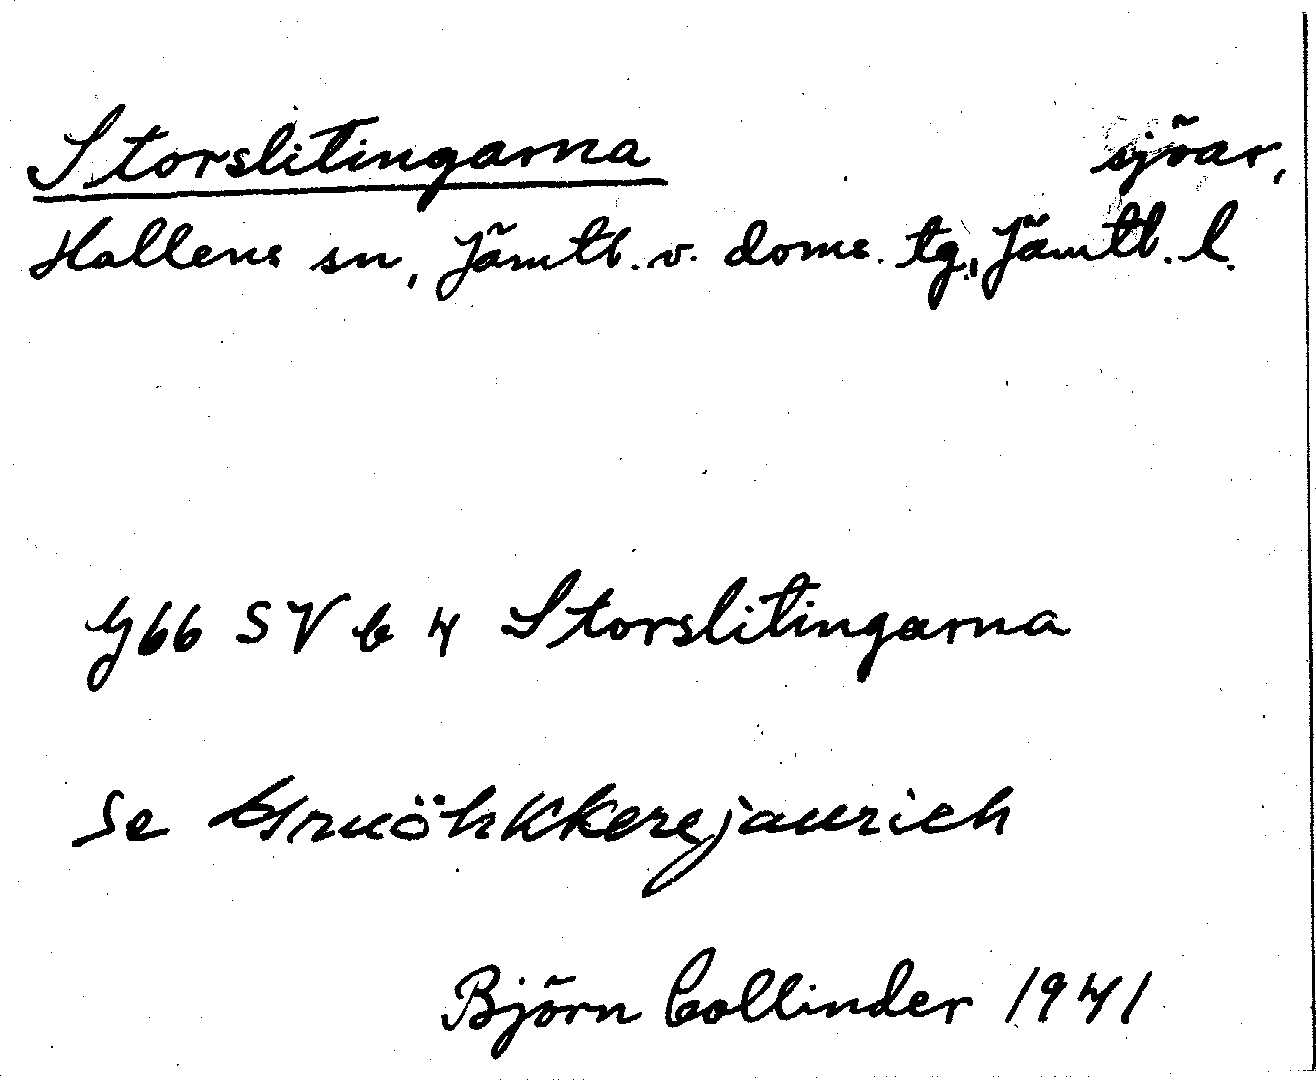 Storslitingarna sjöar,
Hallens sn, Jämtl. v. doms. tg, Jämtl. l.
G66 SV b 4 Storslitingarna
Se
Björn Collinder 1941